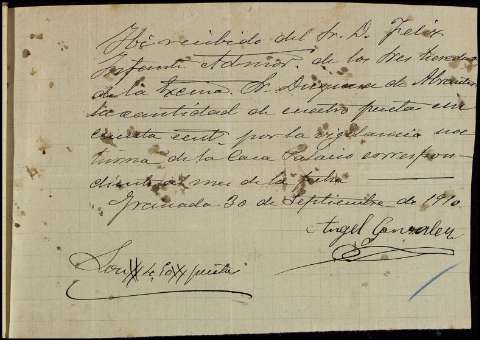 He recibido del Sr. D. Felix
Infante Admor. de los Sres hered
de la Excma. Sr. Duquesa de Abrantes
la cantidad de cuatro pesetas cin
cuenta cent. por la vigilancia noc
turna de la Casa Palacio correspon-
diente al mes de la fecha
Granada 30 de Septiembre de 1910
Angel Gonzalez
Son pesetas